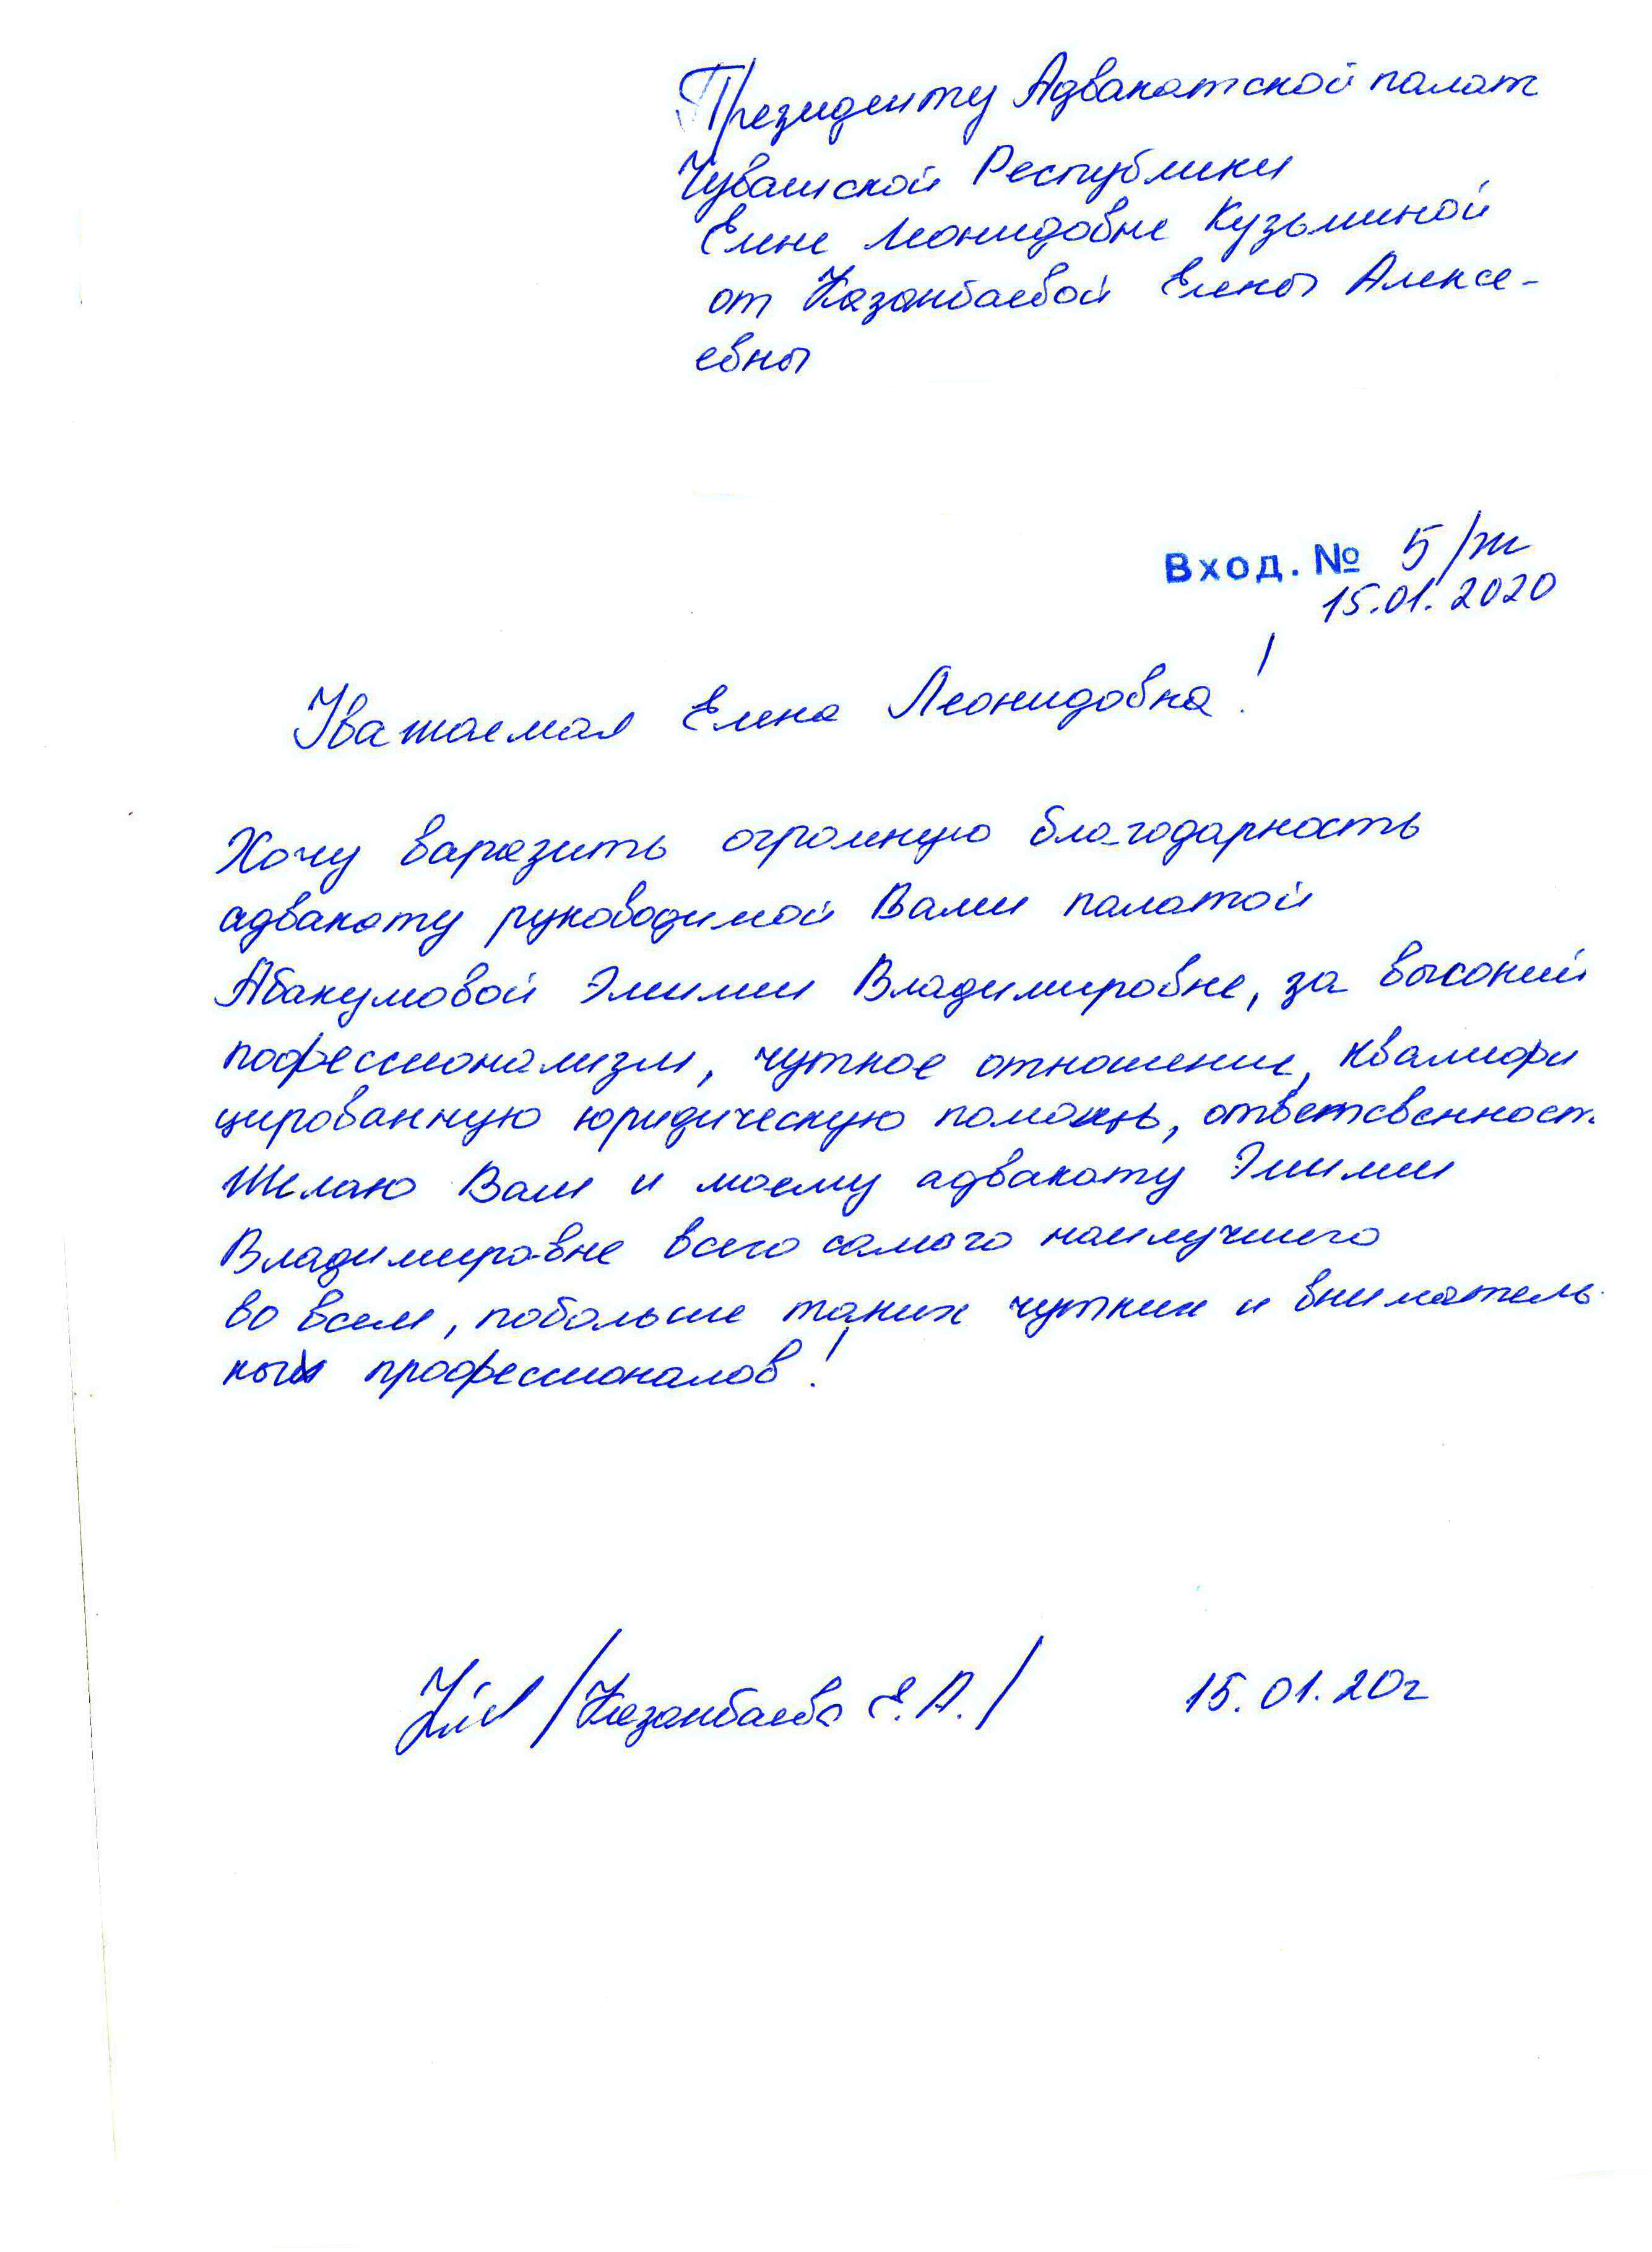 Президенту Адвакатской палат
Чувашской Республики
Елене Леонидовне Кузьминой
от Казанбаевой Елены Алексе-
евны
Вход. № 5/ж
15.01.2020
Уважаемая Елена Леонидовна!
Хочу варазить огромную благодарность
адвакату руководимой Вами палатой
Абакумовой Эмилии Владимировне, за высокий
пофессионализм, чуткое отношение, квалифи
цированную юридическую помощь, ответсвенност.
Желаю Вам и моему адвакату Эмилии
Владимировне всего самого наилучшего
во всем, побольше таких чутких и вниматель-
ных профессионалов!
/Казанбаева Е.А./ 15.01.20г